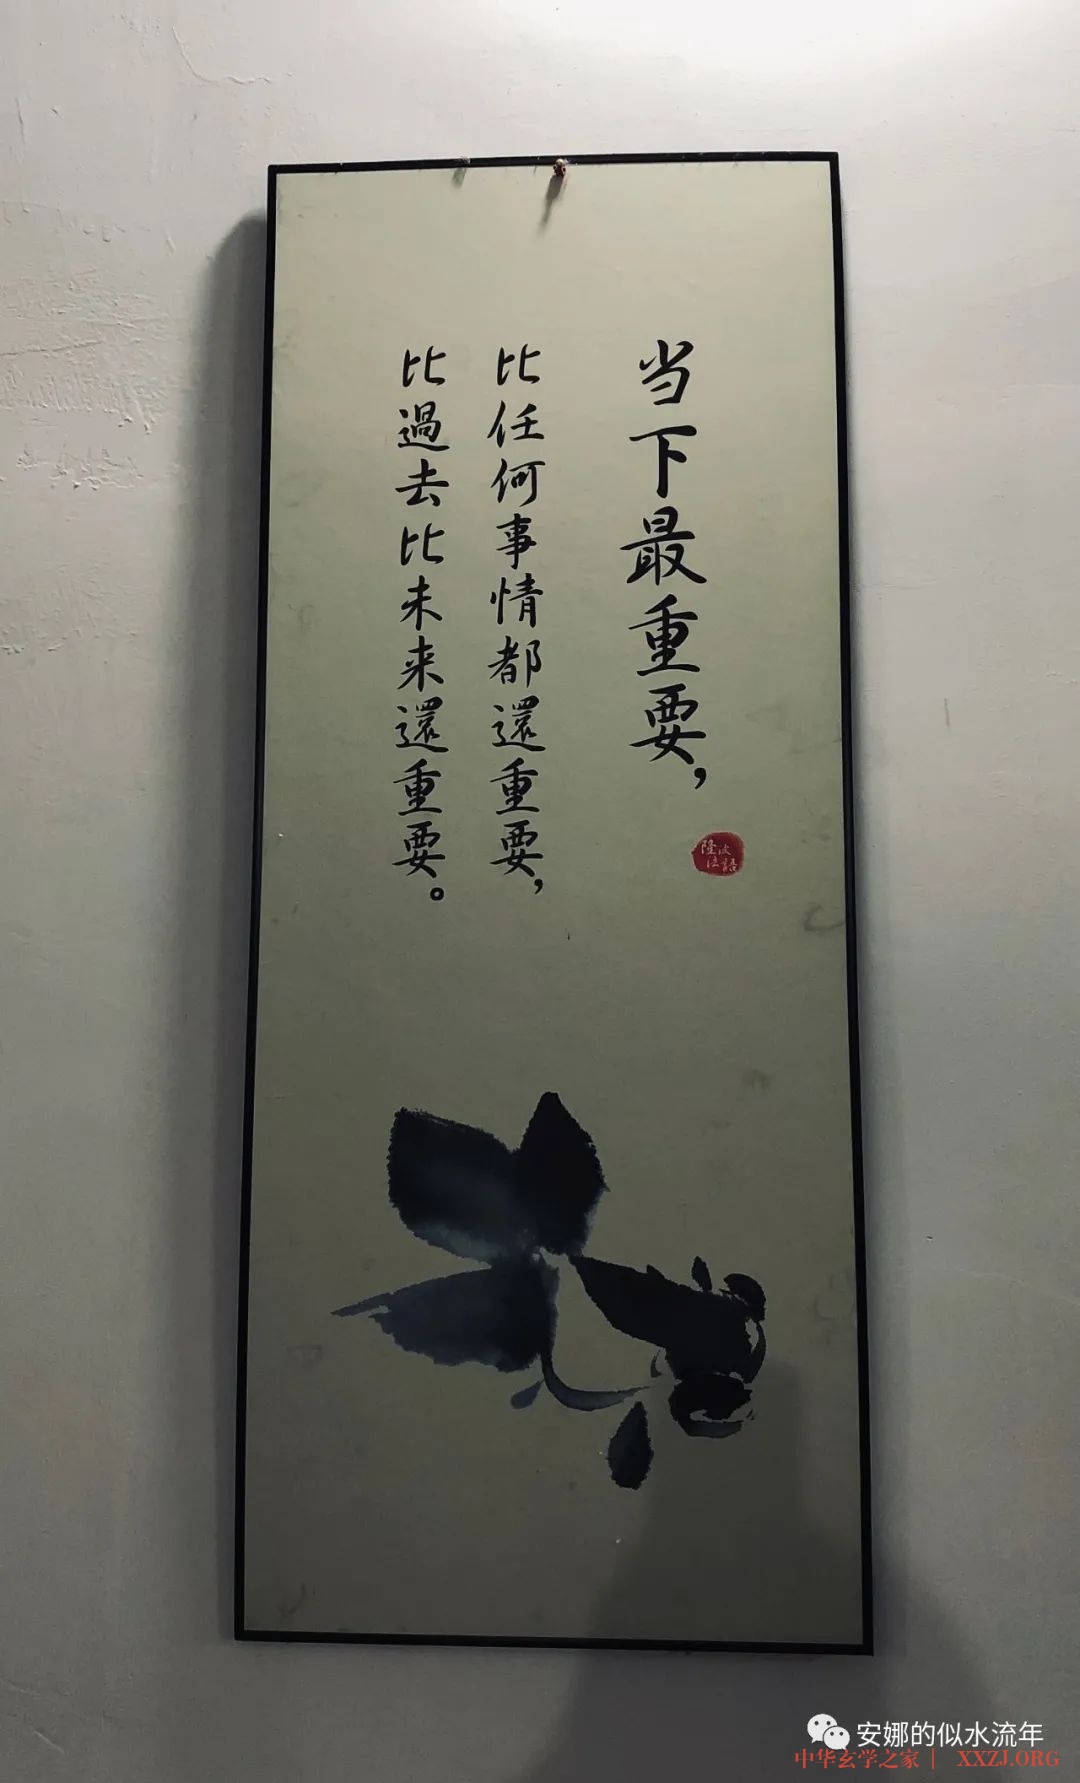 当下最重要，
比任何事情都還重要，
比過去比未来還重要。
隆波
法語
安娜的似水流年
中华玄学之家｜ XXZJ.ORG